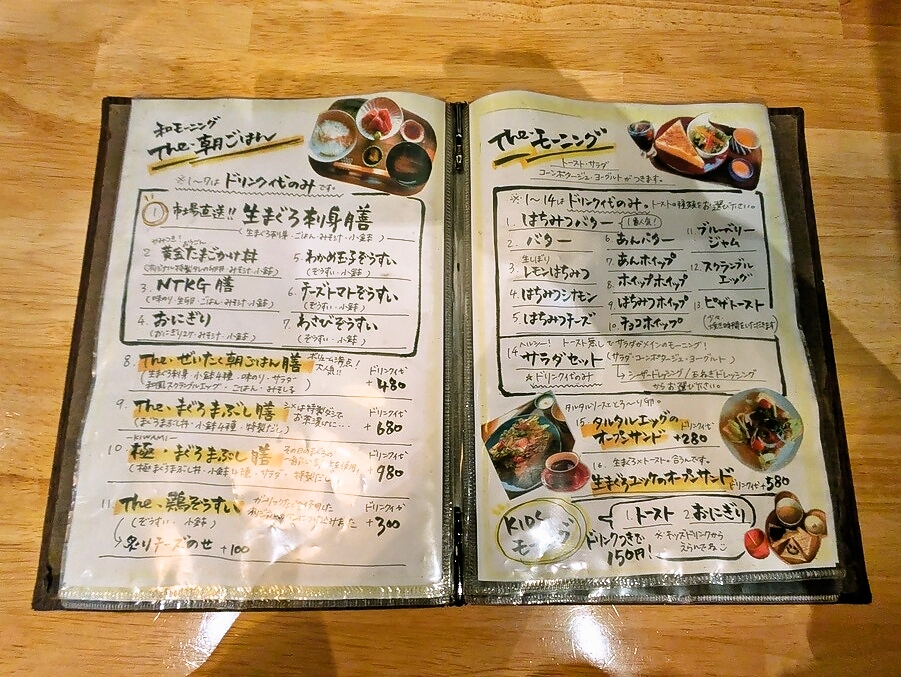 和モーニング
The・朝ごはん
※1〜7は ドリンク代のみ です。
① 市場直送!! 生まぐろ刺身膳
(生まぐろ刺身・ごはん・みそ汁・小鉢)
2. 黄金たまごかけ丼
3. NTKG膳
(味のり・生卵・ごはん・みそ汁・小鉢)
4. おにぎり
(おにぎり2ケ・みそ汁・小鉢)
5. わかめ玉子ぞうすい
(ぞうすい・小鉢)
6. チーズトマトぞうすい
(ぞうすい・小鉢)
7. わさびぞうすい
(ぞうすい・小鉢)
8. The・ぜいたく朝ごはん膳 ボリューム満点! 大人気!!
(生まぐろ刺身・小鉢4種・味のり・サラダ・
和風スクランブルエッグ・ごはん・みそ汁)
ドリンク代 +480
9. The・まぐろまぶし膳 ※〆は特製ダシで お茶漬けに…
(まぐろまぶし丼・小鉢4種・特製だし)
ドリンク代 +680
-KIWAMI-
10. 極・まぐろまぶし膳
ドリンク代 +980
11. The・鶏ぞうすい
(ぞうすい・小鉢)
ドリンク代 +300
炙りチーズのせ +100
The・モーニング
トースト・サラダ
コーンポタージュ・ヨーグルトがつきます。
※1〜14は ドリンク代のみ。トーストの種類をお選び下さい。
1. はちみつバター 1番人気!
2. バター
3. 生しぼりレモンはちみつ
4. はちみつシナモン
5. はちみつチーズ
6. あんバター
7. あんホイップ
8. ホイップホイップ
9. はちみつホイップ
10. チョコホイップ
11. ブルーベリージャム
12. スクランブルエッグ
13. ピザトースト
14. ヘルシー! トースト無しでサラダがメインのモーニング!
サラダセット (サラダ・コーンポタージュ・ヨーグルト)
※ドリンク代のみ
シーザードレッシング/玉ねぎドレッシング
からお選び下さい。
タルタルソースととろ〜り卵。
15. タルタルエッグの
オープンサンド ドリンク代 +280
16. 生まぐろ×トースト。合うんです。
生まぐろユッケのオープンサンド ドリンク代 +580
KIDS
モーニング
1. トースト 2. おにぎり
ドリンクつきで
150円!
※キッズドリンクから
えらんでねこ